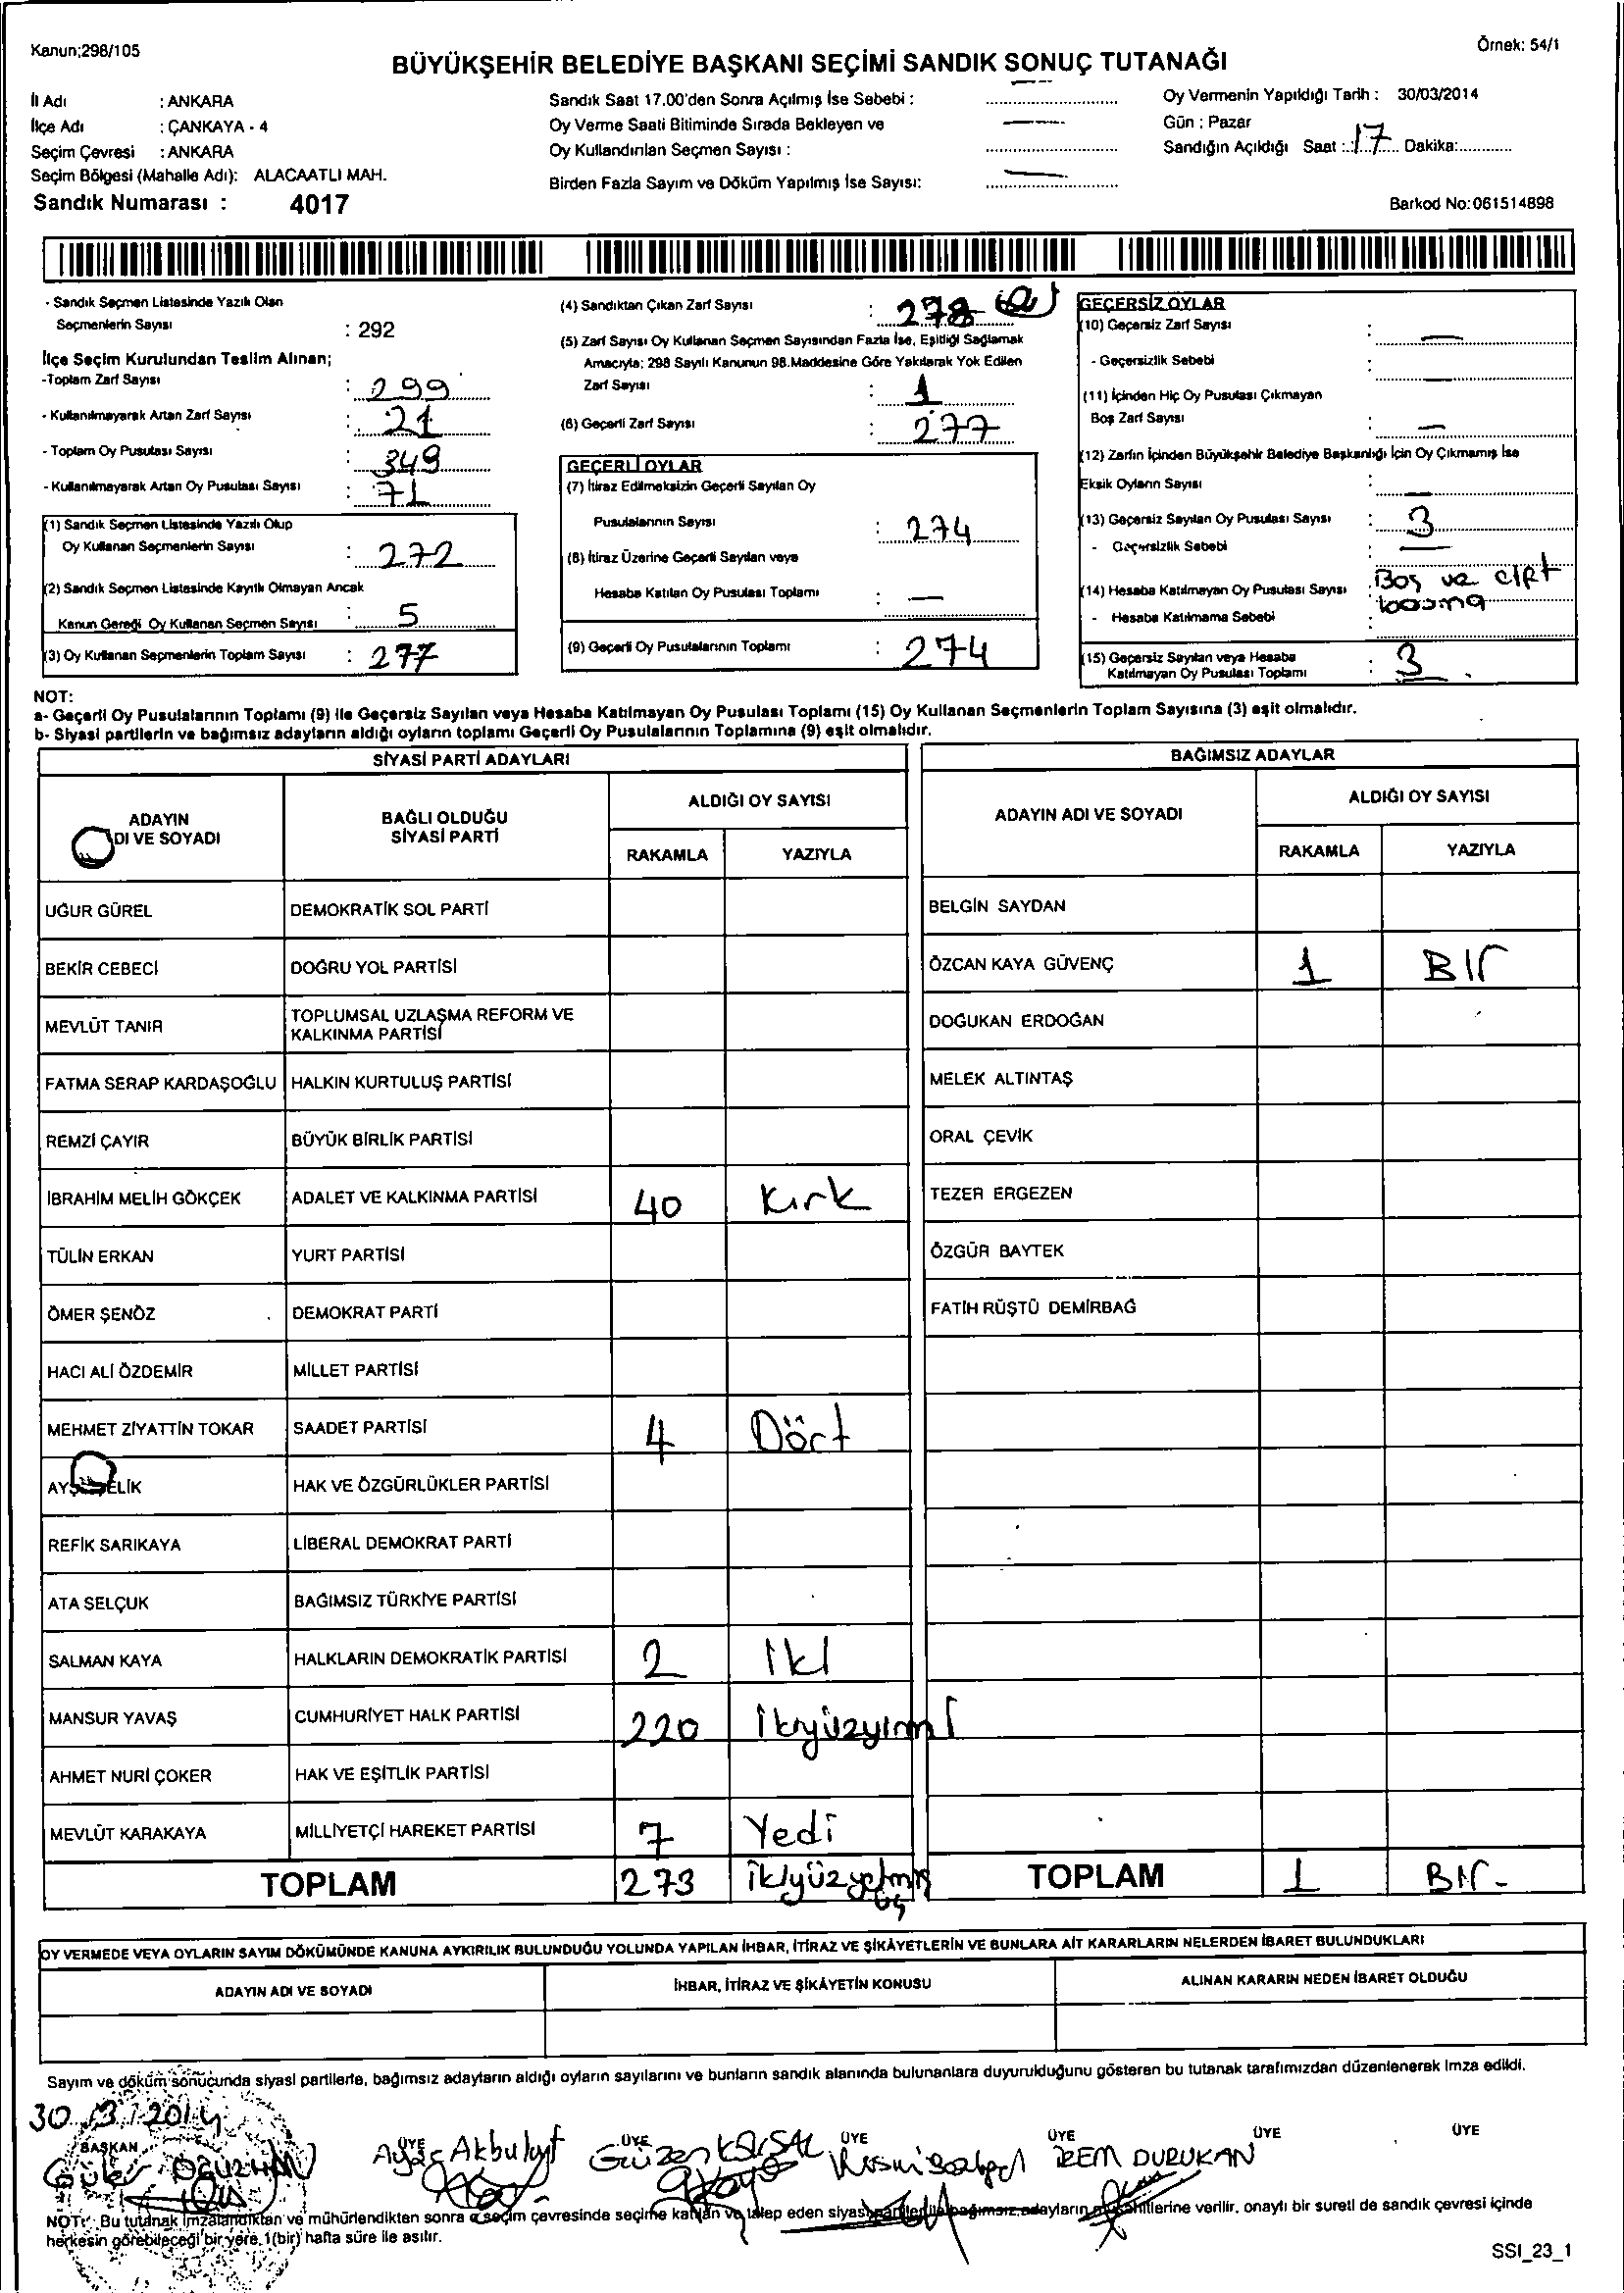 Kanun;298/105
Örnek: 54/1
BÜYÜKŞEHİR BELEDİYE BAŞKANI SEÇİMİ SANDIK SONUÇ TUTANAĞI
İl Adı : ANKARA
İlçe Adı : ÇANKAYA - 4
Seçim Çevresi : ANKARA
Seçim Bölgesi (Mahalle Adı): ALACAATLI MAH.
Sandık Numarası : 4017
Sandık Saat 17.00'den Sonra Açılmış İse Sebebi :
Oy Verme Saati Bitiminde Sırada Bekleyen ve
Oy Kullandırılan Seçmen Sayısı :
Birden Fazla Sayım ve Döküm Yapılmış İse Sayısı:
Oy Vermenin Yapıldığı Tarih : 30/03/2014
Gün : Pazar
Sandığın Açıldığı Saat : 17 Dakika:
Barkod No:061514898
- Sandık Seçmen Listesinde Yazılı Olan
Seçmenlerin Sayısı : 292
İlçe Seçim Kurulundan Teslim Alınan;
-Toplam Zarf Sayısı : 299
- Kullanılmayarak Artan Zarf Sayısı : 21
- Toplam Oy Pusulası Sayısı : 349
- Kullanılmayarak Artan Oy Pusulası Sayısı : 71
(1) Sandık Seçmen Listesinde Yazılı Olup
Oy Kullanan Seçmenlerin Sayısı : 272
(2) Sandık Seçmen Listesinde Kayıtlı Olmayan Ancak
Kanun Gereği Oy Kullanan Seçmen Sayısı : 5
(3) Oy Kullanan Seçmenlerin Toplam Sayısı : 277
(4) Sandıktan Çıkan Zarf Sayısı : 278
(5) Zarf Sayısı Oy Kullanan Seçmen Sayısından Fazla İse, Eşitliği Sağlamak
Amacıyla; 298 Sayılı Kanunun 98.Maddesine Göre Yakılarak Yok Edilen
Zarf Sayısı : 1
(6) Geçerli Zarf Sayısı : 277
GEÇERLİ OYLAR
(7) İtiraz Edilmeksizin Geçerli Sayılan Oy
Pusulalarının Sayısı : 274
(8) İtiraz Üzerine Geçerli Sayılan veya
Hesaba Katılan Oy Pusulası Toplamı : —
(9) Geçerli Oy Pusulalarının Toplamı : 274
GEÇERSİZ OYLAR
(10) Geçersiz Zarf Sayısı : —
- Geçersizlik Sebebi :
(11) İçinden Hiç Oy Pusulası Çıkmayan
Boş Zarf Sayısı : —
(12) Zarfın İçinden Büyükşehir Belediye Başkanlığı İçin Oy Çıkmamış İse
Eksik Oyların Sayısı : —
(13) Geçersiz Sayılan Oy Pusulası Sayısı : 3
- Geçersizlik Sebebi : —
(14) Hesaba Katılmayan Oy Pusulası Sayısı : Boş ve çift
- Hesaba Katılmama Sebebi : basma
(15) Geçersiz Sayılan veya Hesaba
Katılmayan Oy Pusulası Toplamı : 3
NOT:
a- Geçerli Oy Pusulalarının Toplamı (9) ile Geçersiz Sayılan veya Hesaba Katılmayan Oy Pusulası Toplamı (15) Oy Kullanan Seçmenlerin Toplam Sayısına (3) eşit olmalıdır.
b- Siyasi partilerin ve bağımsız adayların aldığı oyların toplamı Geçerli Oy Pusulalarının Toplamına (9) eşit olmalıdır.
SİYASİ PARTİ ADAYLARI
ADAYIN
DI VE SOYADI
BAĞLI OLDUĞU
SİYASİ PARTİ
ALDIĞI OY SAYISI
RAKAMLA YAZIYLA
UĞUR GÜREL DEMOKRATİK SOL PARTİ
BEKİR CEBECİ DOĞRU YOL PARTİSİ
MEVLÜT TANIR TOPLUMSAL UZLAŞMA REFORM VE
KALKINMA PARTİSİ
FATMA SERAP KARDAŞOĞLU HALKIN KURTULUŞ PARTİSİ
REMZİ ÇAYIR BÜYÜK BİRLİK PARTİSİ
İBRAHİM MELİH GÖKÇEK ADALET VE KALKINMA PARTİSİ 40 Kırk
TÜLİN ERKAN YURT PARTİSİ
ÖMER ŞENÖZ DEMOKRAT PARTİ
HACI ALİ ÖZDEMİR MİLLET PARTİSİ
MEHMET ZİYATTİN TOKAR SAADET PARTİSİ 4 Dört
AYŞ ELİK HAK VE ÖZGÜRLÜKLER PARTİSİ
REFİK SARIKAYA LİBERAL DEMOKRAT PARTİ
ATA SELÇUK BAĞIMSIZ TÜRKİYE PARTİSİ
SALMAN KAYA HALKLARIN DEMOKRATİK PARTİSİ 2 İki
MANSUR YAVAŞ CUMHURİYET HALK PARTİSİ 220 İkiyüzyirmi
AHMET NURİ ÇOKER HAK VE EŞİTLİK PARTİSİ
MEVLÜT KARAKAYA MİLLİYETÇİ HAREKET PARTİSİ 7 Yedi
TOPLAM 273 ikiyüzyetmiş
üç
BAĞIMSIZ ADAYLAR
ADAYIN ADI VE SOYADI
ALDIĞI OY SAYISI
RAKAMLA YAZIYLA
BELGİN SAYDAN
ÖZCAN KAYA GÜVENÇ 1 BIr
DOĞUKAN ERDOĞAN
MELEK ALTINTAŞ
ORAL ÇEVİK
TEZER ERGEZEN
ÖZGÜR BAYTEK
FATİH RÜŞTÜ DEMİRBAĞ
TOPLAM 1 BIr-
OY VERMEDE VEYA OYLARIN SAYIM DÖKÜMÜNDE KANUNA AYKIRILIK BULUNDUĞU YOLUNDA YAPILAN İHBAR, İTİRAZ VE ŞİKÂYETLERİN VE BUNLARA AİT KARARLARIN NELERDEN İBARET BULUNDUKLARI
ADAYIN ADI VE SOYADI
İHBAR, İTİRAZ VE ŞİKÂYETİN KONUSU
ALINAN KARARIN NEDEN İBARET OLDUĞU
Sayım ve döküm sonucunda siyasi partilerle, bağımsız adayların aldığı oyların sayılarını ve bunların sandık alanında bulunanlara duyurulduğunu gösteren bu tutanak tarafımızdan düzenlenerek imza edildi.
30/3/2014
BAŞKAN ÜYE ÜYE ÜYE ÜYE ÜYE ÜYE
Güler OĞUZHAN Ayşe Akbulut Güzen İREM DURUKAN
NOT: Bu tutanak imzalandıktan ve mühürlendikten sonra o seçim çevresinde seçime katılan ve talep eden siyasi partiler ile bağımsız adayların müşahitlerine verilir, onaylı bir sureti de sandık çevresi içinde
herkesin görebileceği bir yere, 1(bir) hafta süre ile asılır.
SSI_23_1